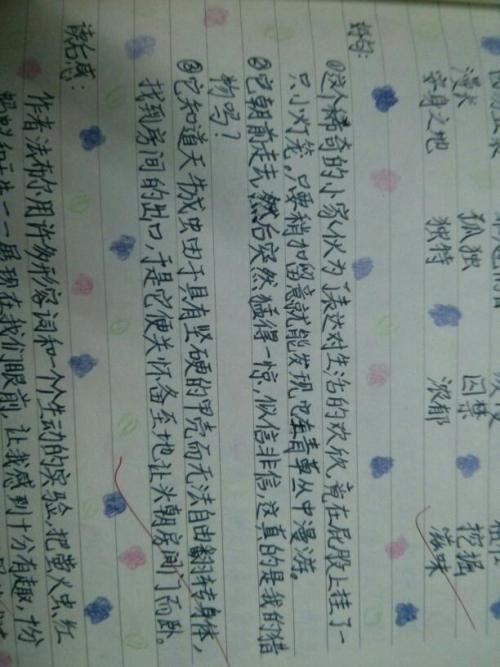 漫天 孤独 囚禁 挖掘
安身之地 独特 浓郁 滋味
好句:
①这个稀奇的小家伙为了表达对生活的欢欣,竟在屁股上挂了一
只小灯笼。只要稍加留意就能发现它在青草丛中漫游。
②它朝前走去,然后突然猛得一惊,似信非信,这真的是我的猎
物吗?
③它知道天牛成虫由于具有坚硬的甲壳而无法自由翻转身体,
找到房间的出口,于是它便关怀备至地让头朝房间门而卧。
读后感:
作者法布尔用许多形容词和一个个生动的实验,把萤火虫,红
一一展现在我们眼前,让我感到十分有趣,十分